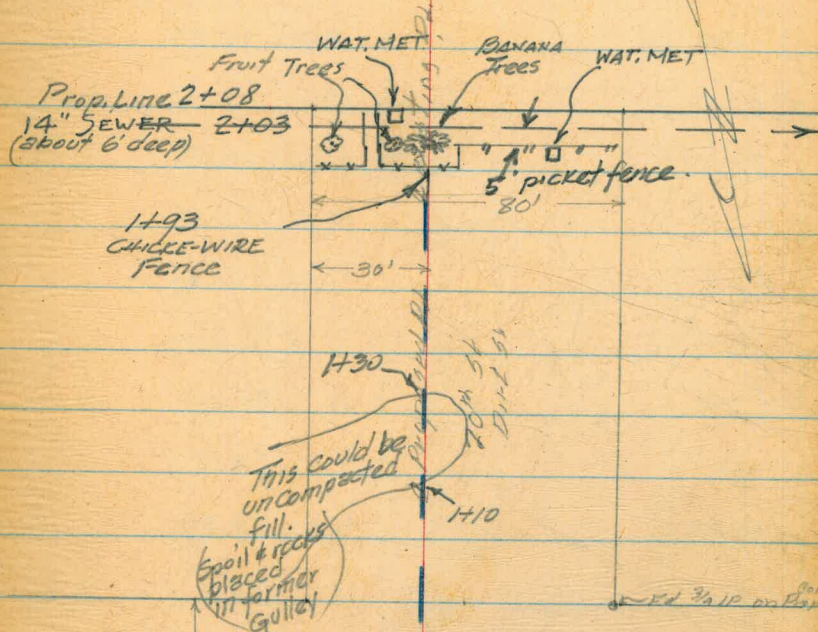 WAT. MET
BANANA
Trees
WAT. MET
Fruit Trees
Prop. Line 2+08
14" SEWER 2+03
(about 6' deep)
5' picket fence.
80'
1+93
CHICKE-WIRE
Fence
30'
1+30
20th St
Dirt St
This could be
uncompacted
fill.
Spoil & rocks
placed
in former
Gulley
1+10
Fd 3/4 IP on